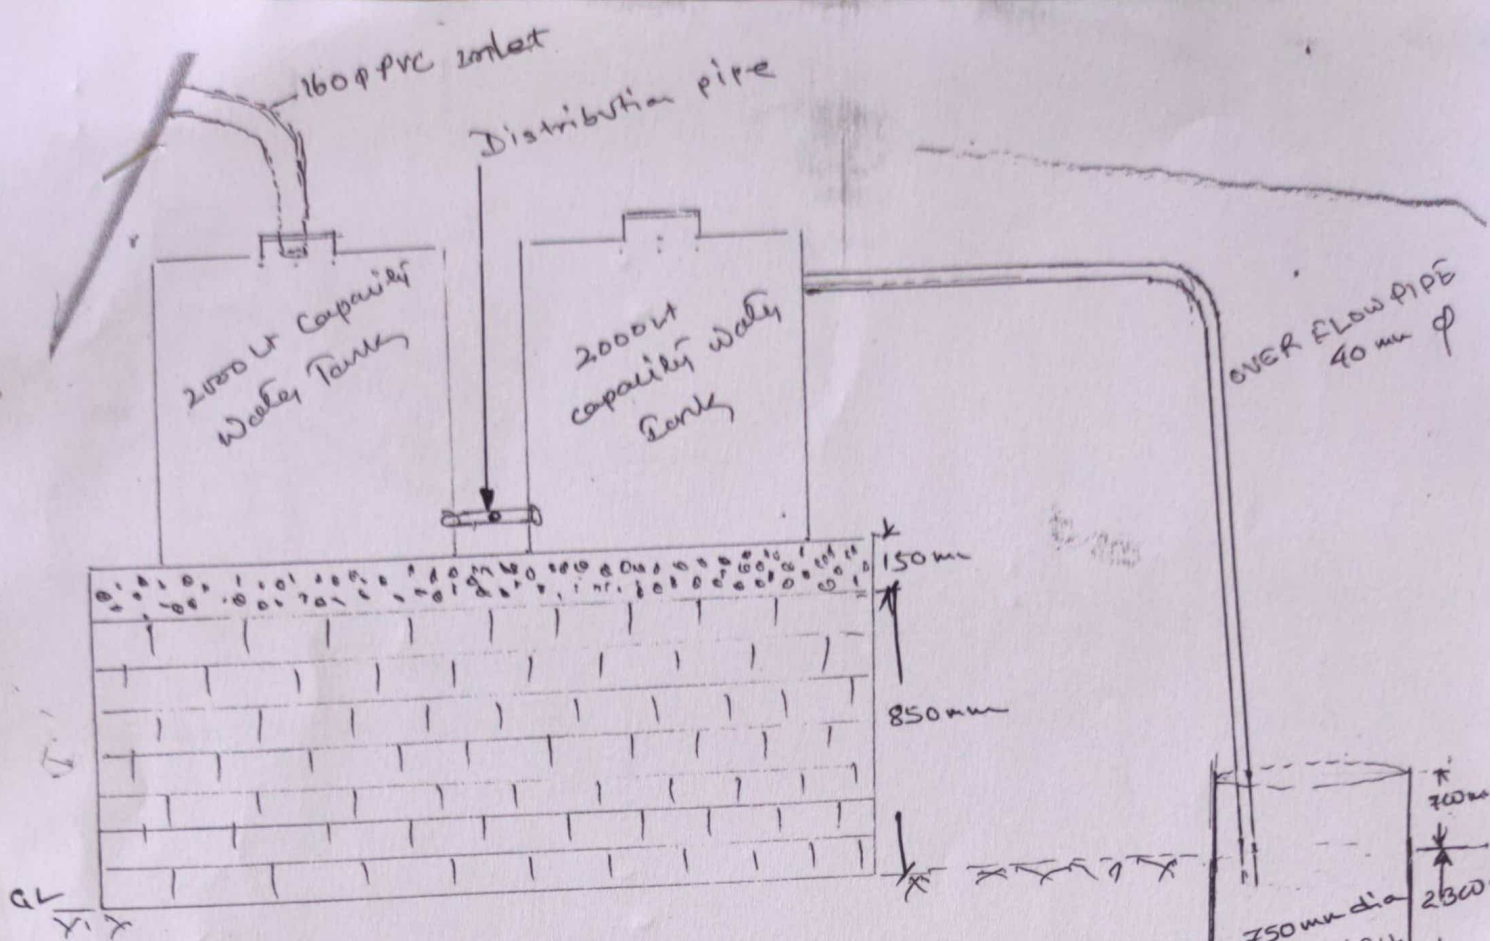 160 φ PVC inlet
Distribution pipe
2000 Lt Capacity
Water Tank
2000 Lt
capacity Water
Tank
OVER FLOW PIPE
40 mm φ
150 mm
850 mm
700 mm
2300
750 mm dia
GL